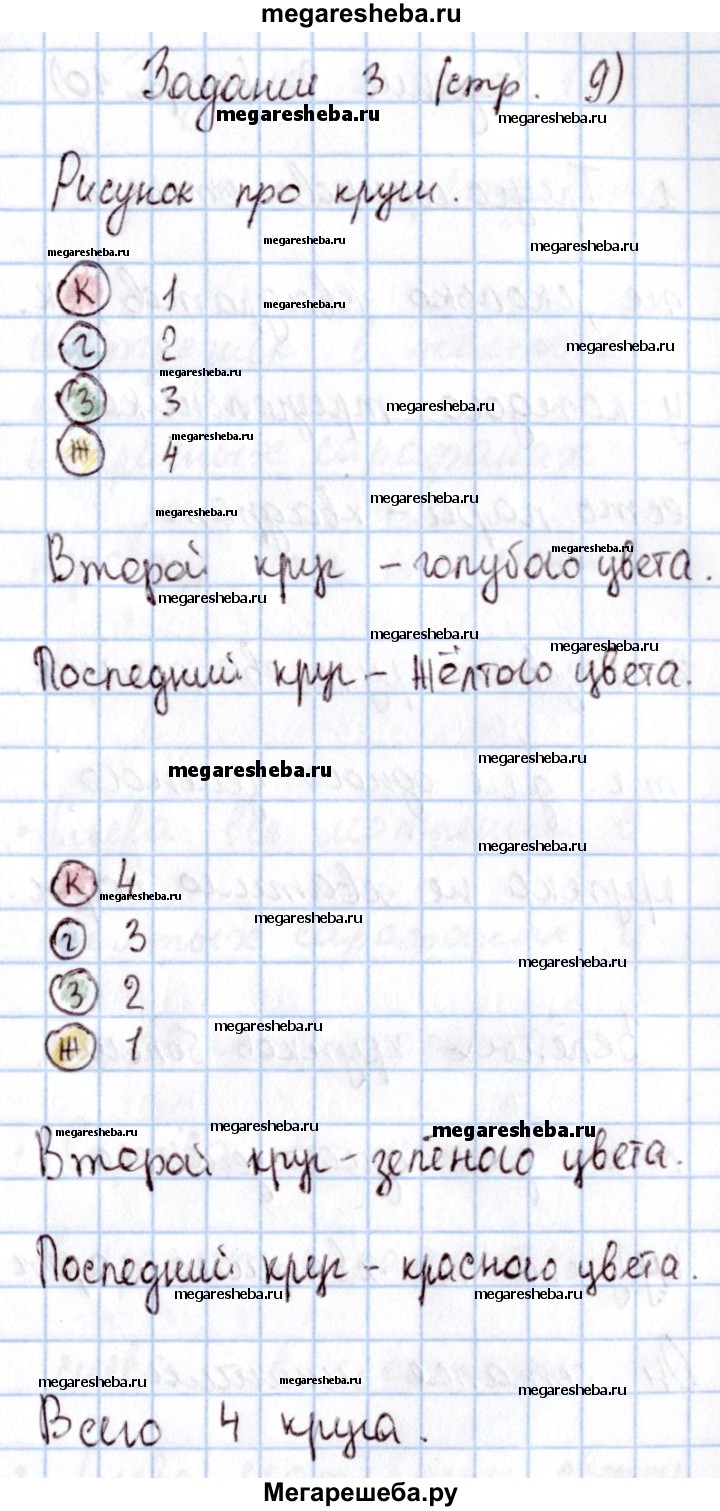 megaresheba.ru
Задание 3 (стр. 9)
megaresheba.ru megaresheba.ru
Рисунок про круги.
megaresheba.ru megaresheba.ru megaresheba.ru
К 1 megaresheba.ru
Г 2 megaresheba.ru
megaresheba.ru
З 3 megaresheba.ru
Ж 4 megaresheba.ru
megaresheba.ru
megaresheba.ru
Второй круг - голубого цвета.
megaresheba.ru megaresheba.ru
megaresheba.ru megaresheba.ru
Последний круг - жёлтого цвета.
megaresheba.ru megaresheba.ru
megaresheba.ru
К 4 megaresheba.ru
megaresheba.ru
Г 3
megaresheba.ru
З 2
megaresheba.ru
Ж 1
megaresheba.ru megaresheba.ru megaresheba.ru
Второй круг - зелёного цвета.
Последний круг - красного цвета.
megaresheba.ru megaresheba.ru
megaresheba.ru megaresheba.ru megaresheba.ru
Всего 4 круга.
Мегарешеба.ру